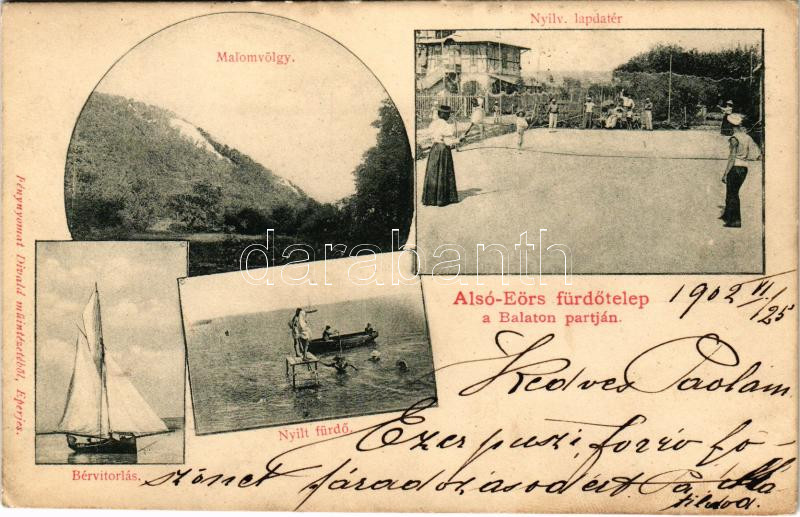 Nyilv. lapdatér
Malomvölgy.
Fénynyomat Divald műintézetéből, Eperjes.
darabanth
Alsó-Eörs fürdőtelep
a Balaton partján.
1902 VI/25
Nyilt fürdő.
Bérvitorlás.
Kedves Paolám
Ezer puszi, forró kö-
szönet fáradozásodért. Pá